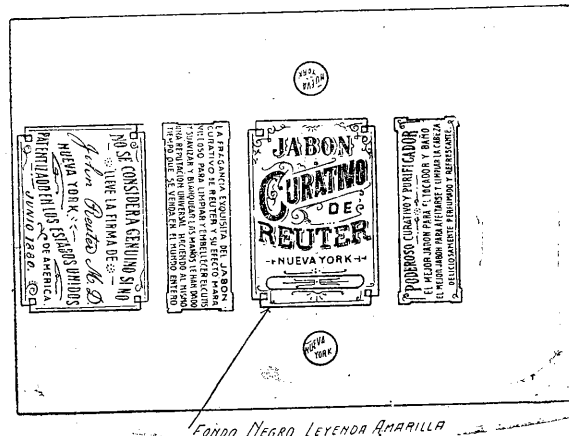 NUEVA
YORK
NO SE CONSIDERA GENUINO SI NO
LLEVE LA FIRMA DE
John Reuter M.D.
NUEVA YORK
PATENTIZADO EN LOS ESTADOS UNIDOS
DE AMERICA.
JUNIO 1880.
LA FRAGANCIA EXQUISITA DEL JABON
CURATIVO DE REUTER Y SU EFECTO MARA
VILLOSO PARA LIMPIAR Y EMBELLECER EL CUTIS
Y SUAVIZAR Y BLANQUEAR LAS MAÑOS LE HAN DADO
UNA REPUTACION UNIVERSAL HACIENDO AL MISMO
TIEMPO QUE SE VENDA EN EL MUNDO ENTERO
JABON
CURATIVO
DE
REUTER
NUEVA YORK
PODEROSO CURATIVO Y PURIFICADOR
EL MEJOR JABON PARA EL TOCADOR Y BAÑO
EL MEJOR JABON PARA AFEITARSE Y LIMPIAR LA CABEZA
DELICIOSAMENTE PERFUMADO Y REFRESCANTE.
NUEVA
YORK
FONDO NEGRO LEYENDA AMARILLA